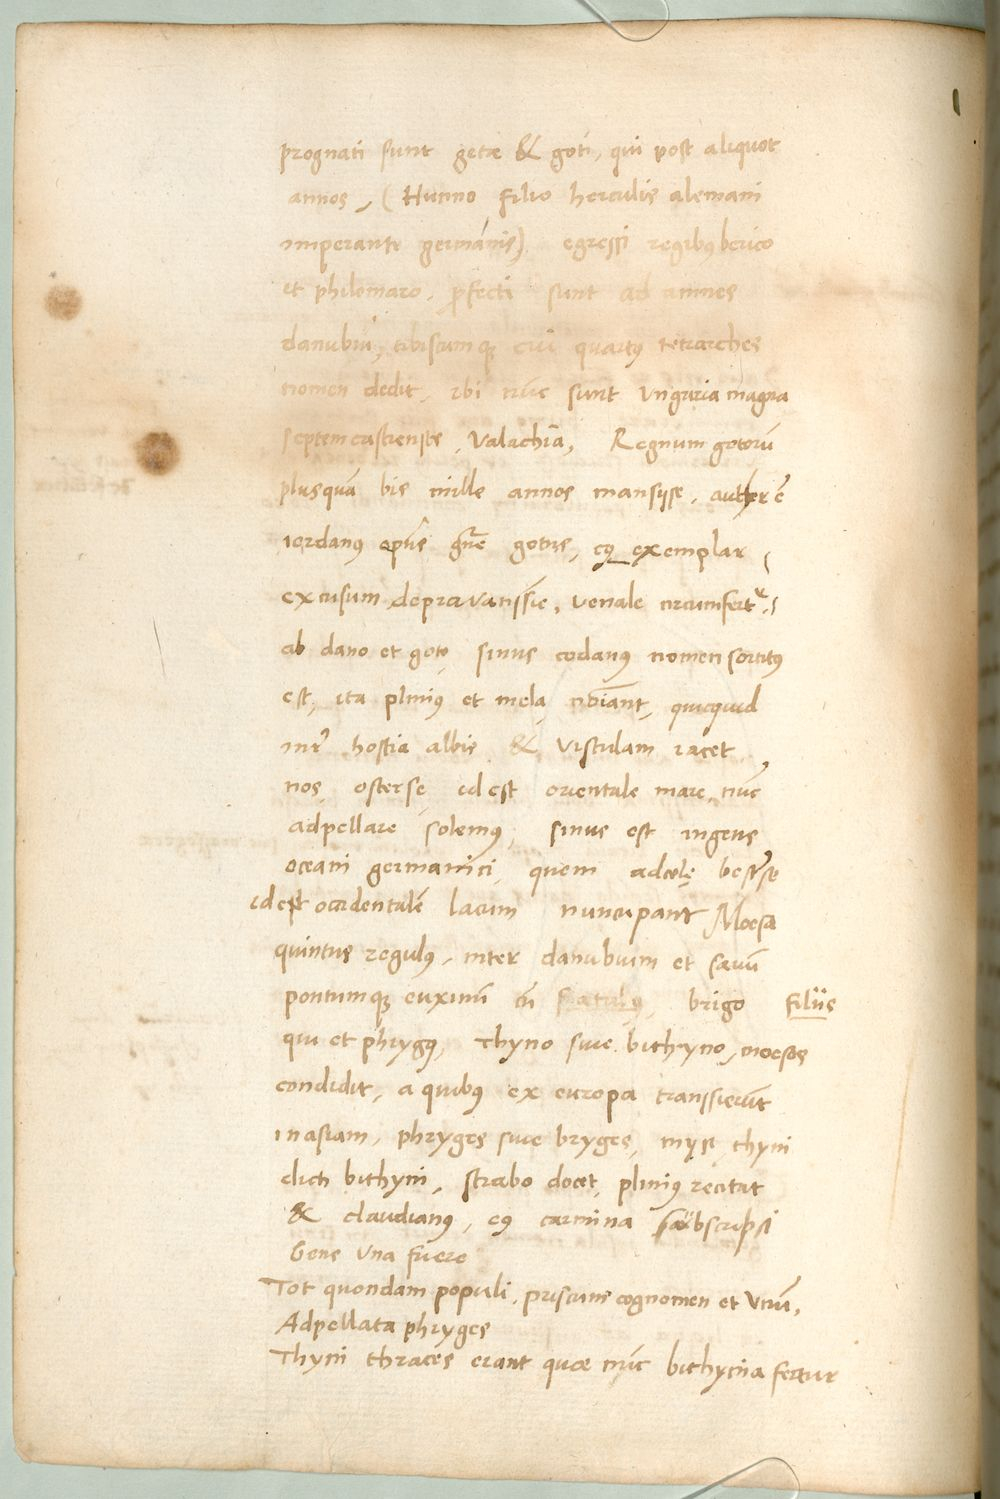 prognati sunt getæ & goti, qui post aliquot
annos, (Hunno filio herculis alemani
imperante germanis) egressi regibꝰ berico
et philomaro, ꝓfecti sunt ad amnes
danubiū, tibiscumqꝫ cui quartꝰ tetrarches
nomen dedit, vbi nūc sunt vngaria magna
septemcastrensis, Valachia, Regnum gotorū
plusquā bis mille annos mansisse, author ē
iordanꝰ ep̄us gn̄e gotus, eiꝰ exemplar
excusum depravatissīe, venale circumfertur
ab dano et goto sinus codanꝰ nomen sortitꝰ
est, ita pliniꝰ et mela nōiant, quicquid
inter hostia albis & vistulam iacet
nos osterse id est orientale mare, nūc
adpellare solemꝰ, sinus est ingens
oceani germanici, quem adcolę besterse
id est occidentalē lacum nuncupant Moesa
quintus regulꝰ, inter danubium et savū
pontumqꝫ euxinū cū brigo filiis
qui et phrygꝰ, Thyno sive bithyno, moesos
condidit, a quibꝰ ex europa transsierūt
in asiam, phryges sive bryges, mysi, thyni
dicti bithyni, strabo docet, pliniꝰ recitat
& claudianꝰ, eiꝰ carmina subscripsi
Gens una fuere
Tot quondam populi, priscumque cognomen et unū,
Adpellata phryges
Thyni thraces erant quæ nūc bithynia fertur